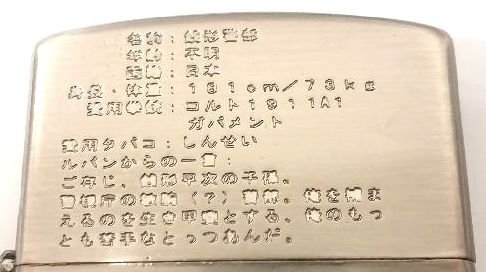 名前：銭形警部
年齢：不明
国籍：日本
身長・体重：181cm／73kg
愛用拳銃：コルト1911A1
ガバメント
愛用タバコ：しんせい
ルパンからの一言：
ご存じ、銭形平次の子孫。
警視庁の敏腕（？）警部。俺を捕ま
えるのを生き甲斐とする、俺のもっ
とも苦手なとっつあんだ。